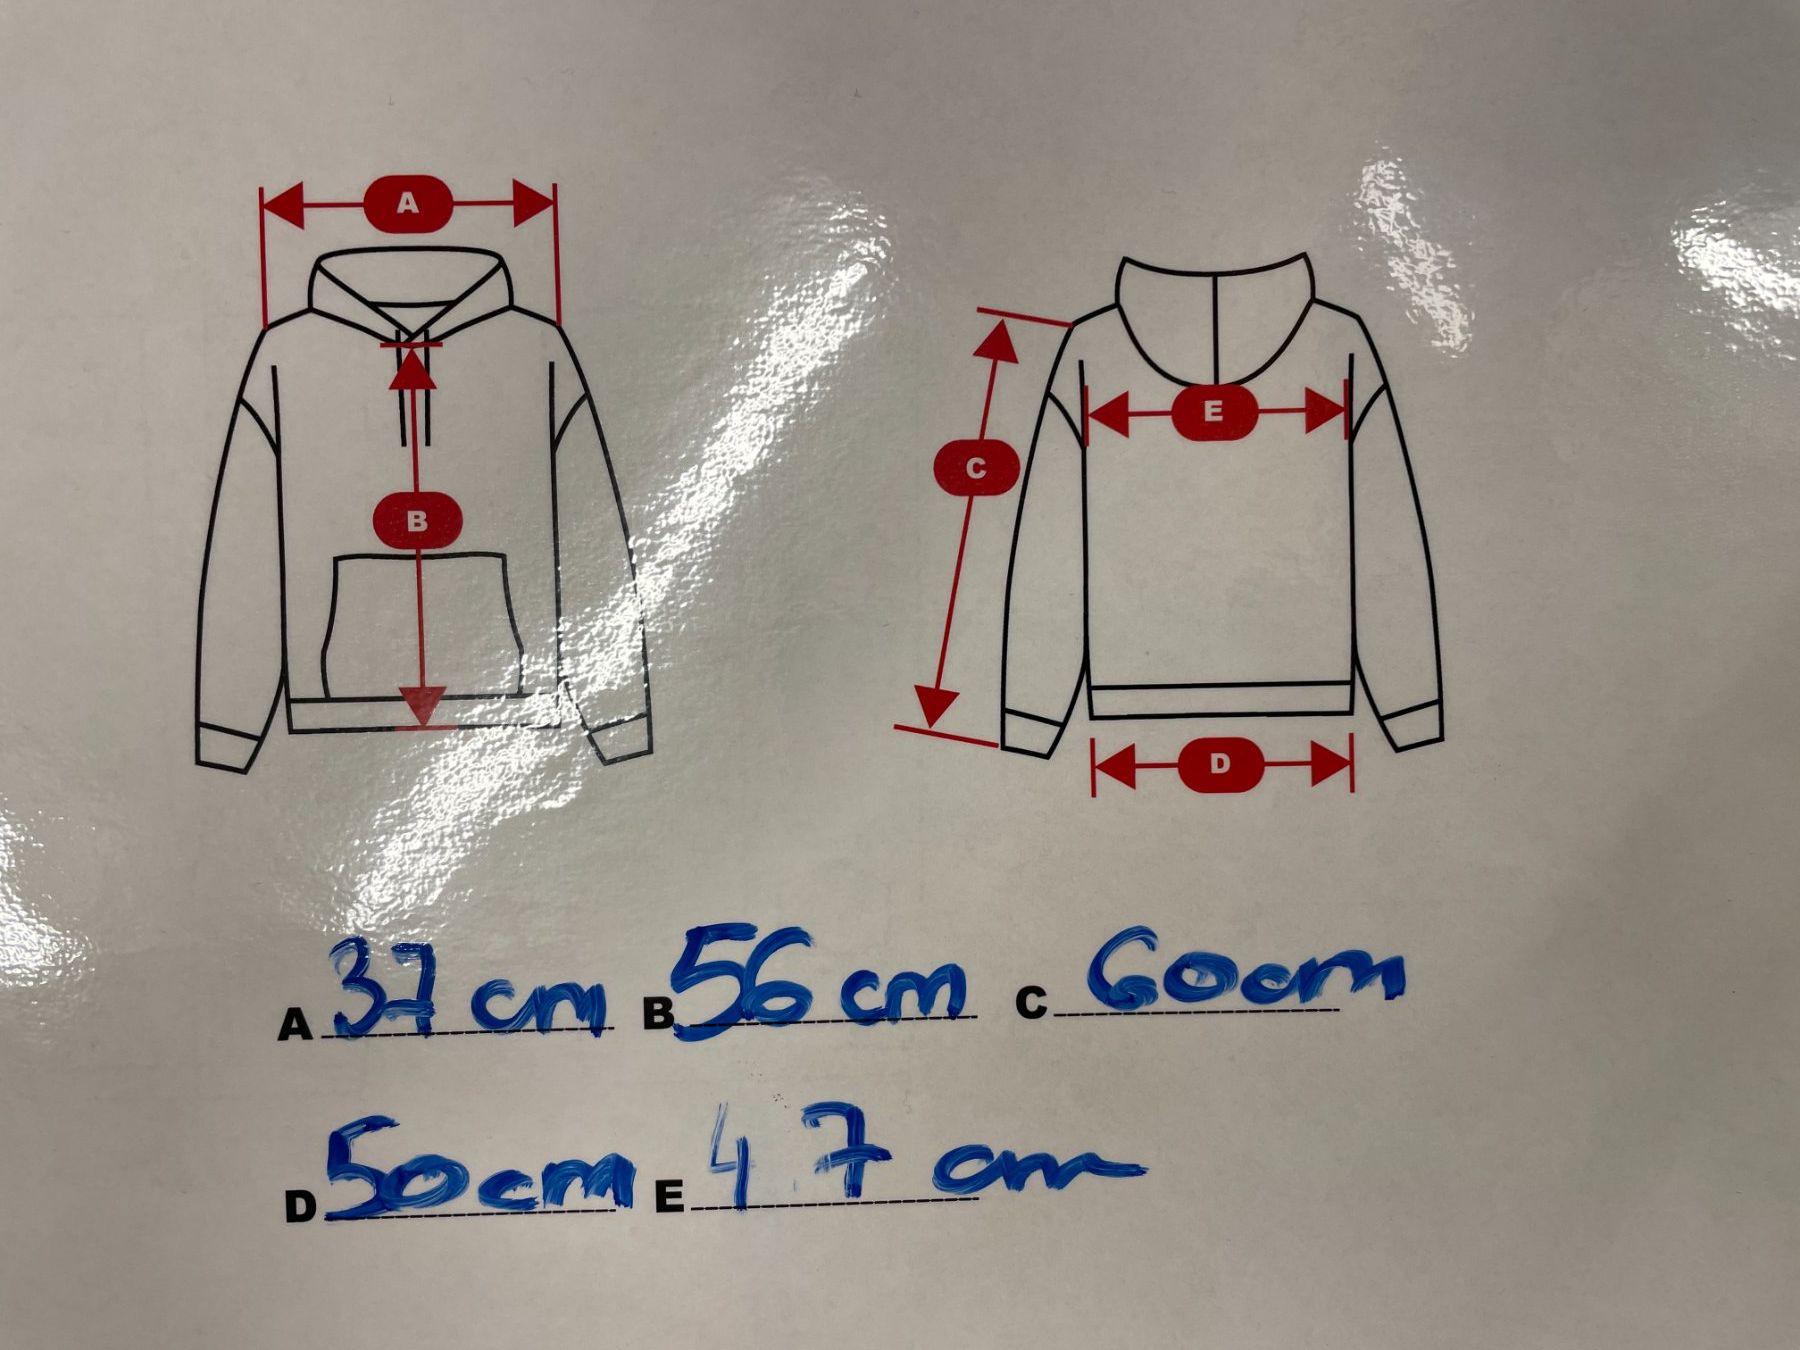 A
B
C
E
D
A 37 cm B 56 cm C 60cm
D 50cm E 47 cm